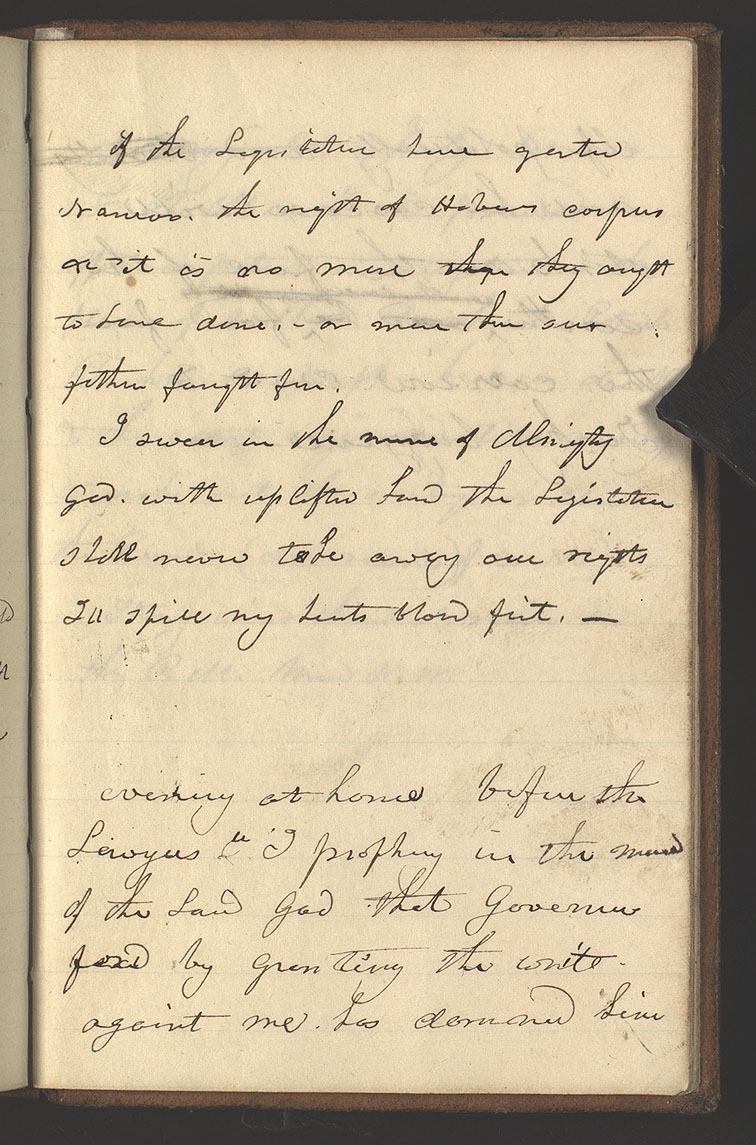 of the Legislature have granted
Nauvoo. the right of Habeus corpus
& it is no more than they ought
to have done. - or more than our
father fought for.
I swear in the name of Almighty
God. with uplifted hand the Legislature
shall never take away our rights
Ill spill my hearts blood first. —
evening at home before the
Lawyers &c I prophecy in the name
of the Lord God that Governor
ford by granting the writ
against me. has damned him